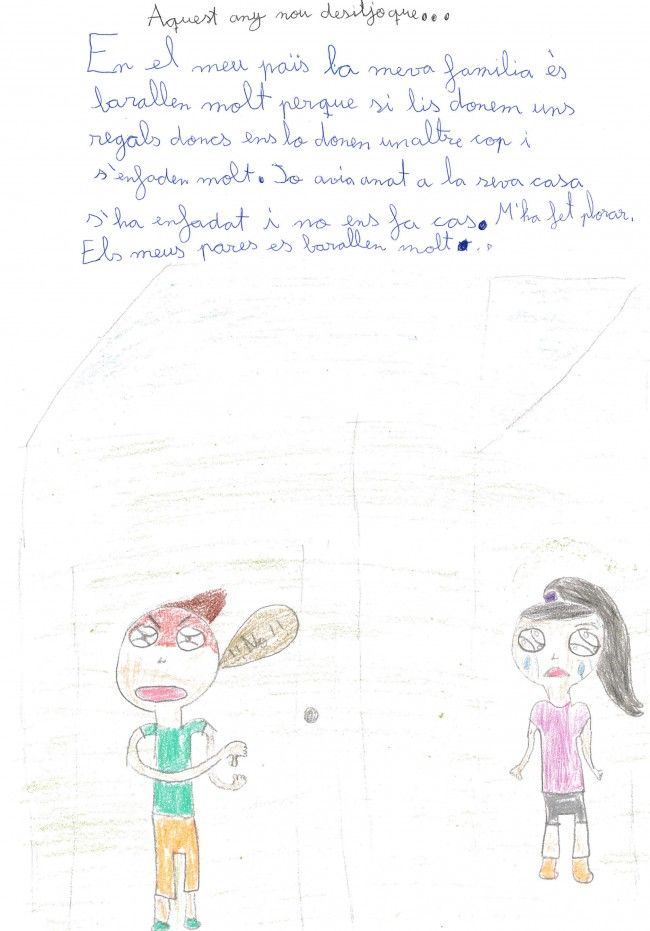 Aquest any nou desitjo que...
En el meu païs la meva familia és
barallen molt perque si lis donem uns
regals doncs ens lo donen unaltre cop i
s'enfaden molt. Jo avia anat a la seva casa
s'ha enfadat i no ens fa cas. M'ha fet plorar.
Els meus pares es barallen molt...
¡¡No!!